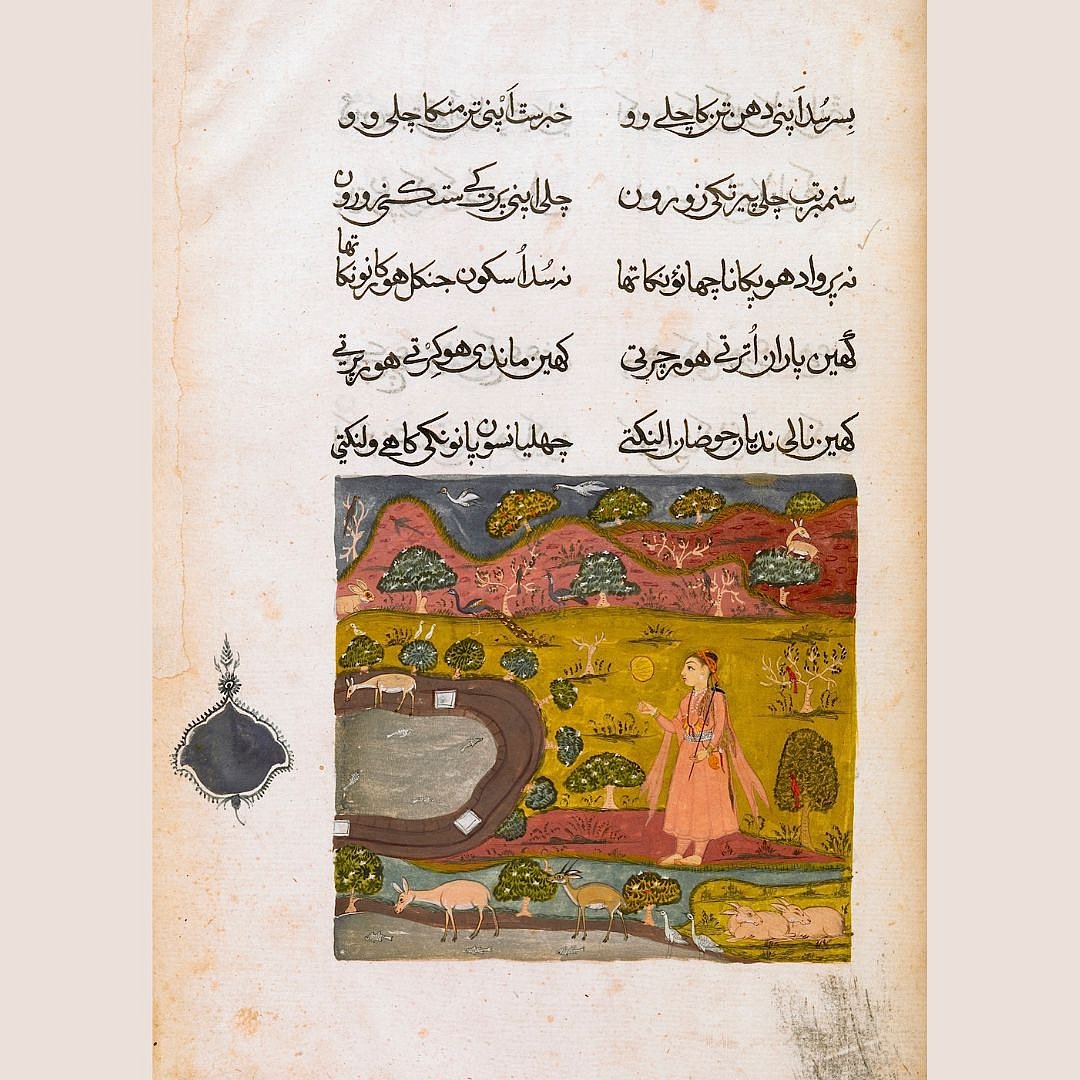 بسر سُد اَپنی دھن تن کا چلے وو خبر ست اَپنی تن من کا چلی وو
سنمبر تب چلی پیرت کی زورون چلی اپنی پرت کے ست کٹھنی ورون
نہ پروا دھوپکا نا چھانؤنکا تھا نہ سُد اُسکون جنکل ھور کانونکا تھا
کھین پاران اُترتے ھور چرتی کھین ماندی ھو کِرتے ھور پرتے
کھین نالی ندیان حوضان النکتے چھلیانسون پانونکی کاھے ولنکتی